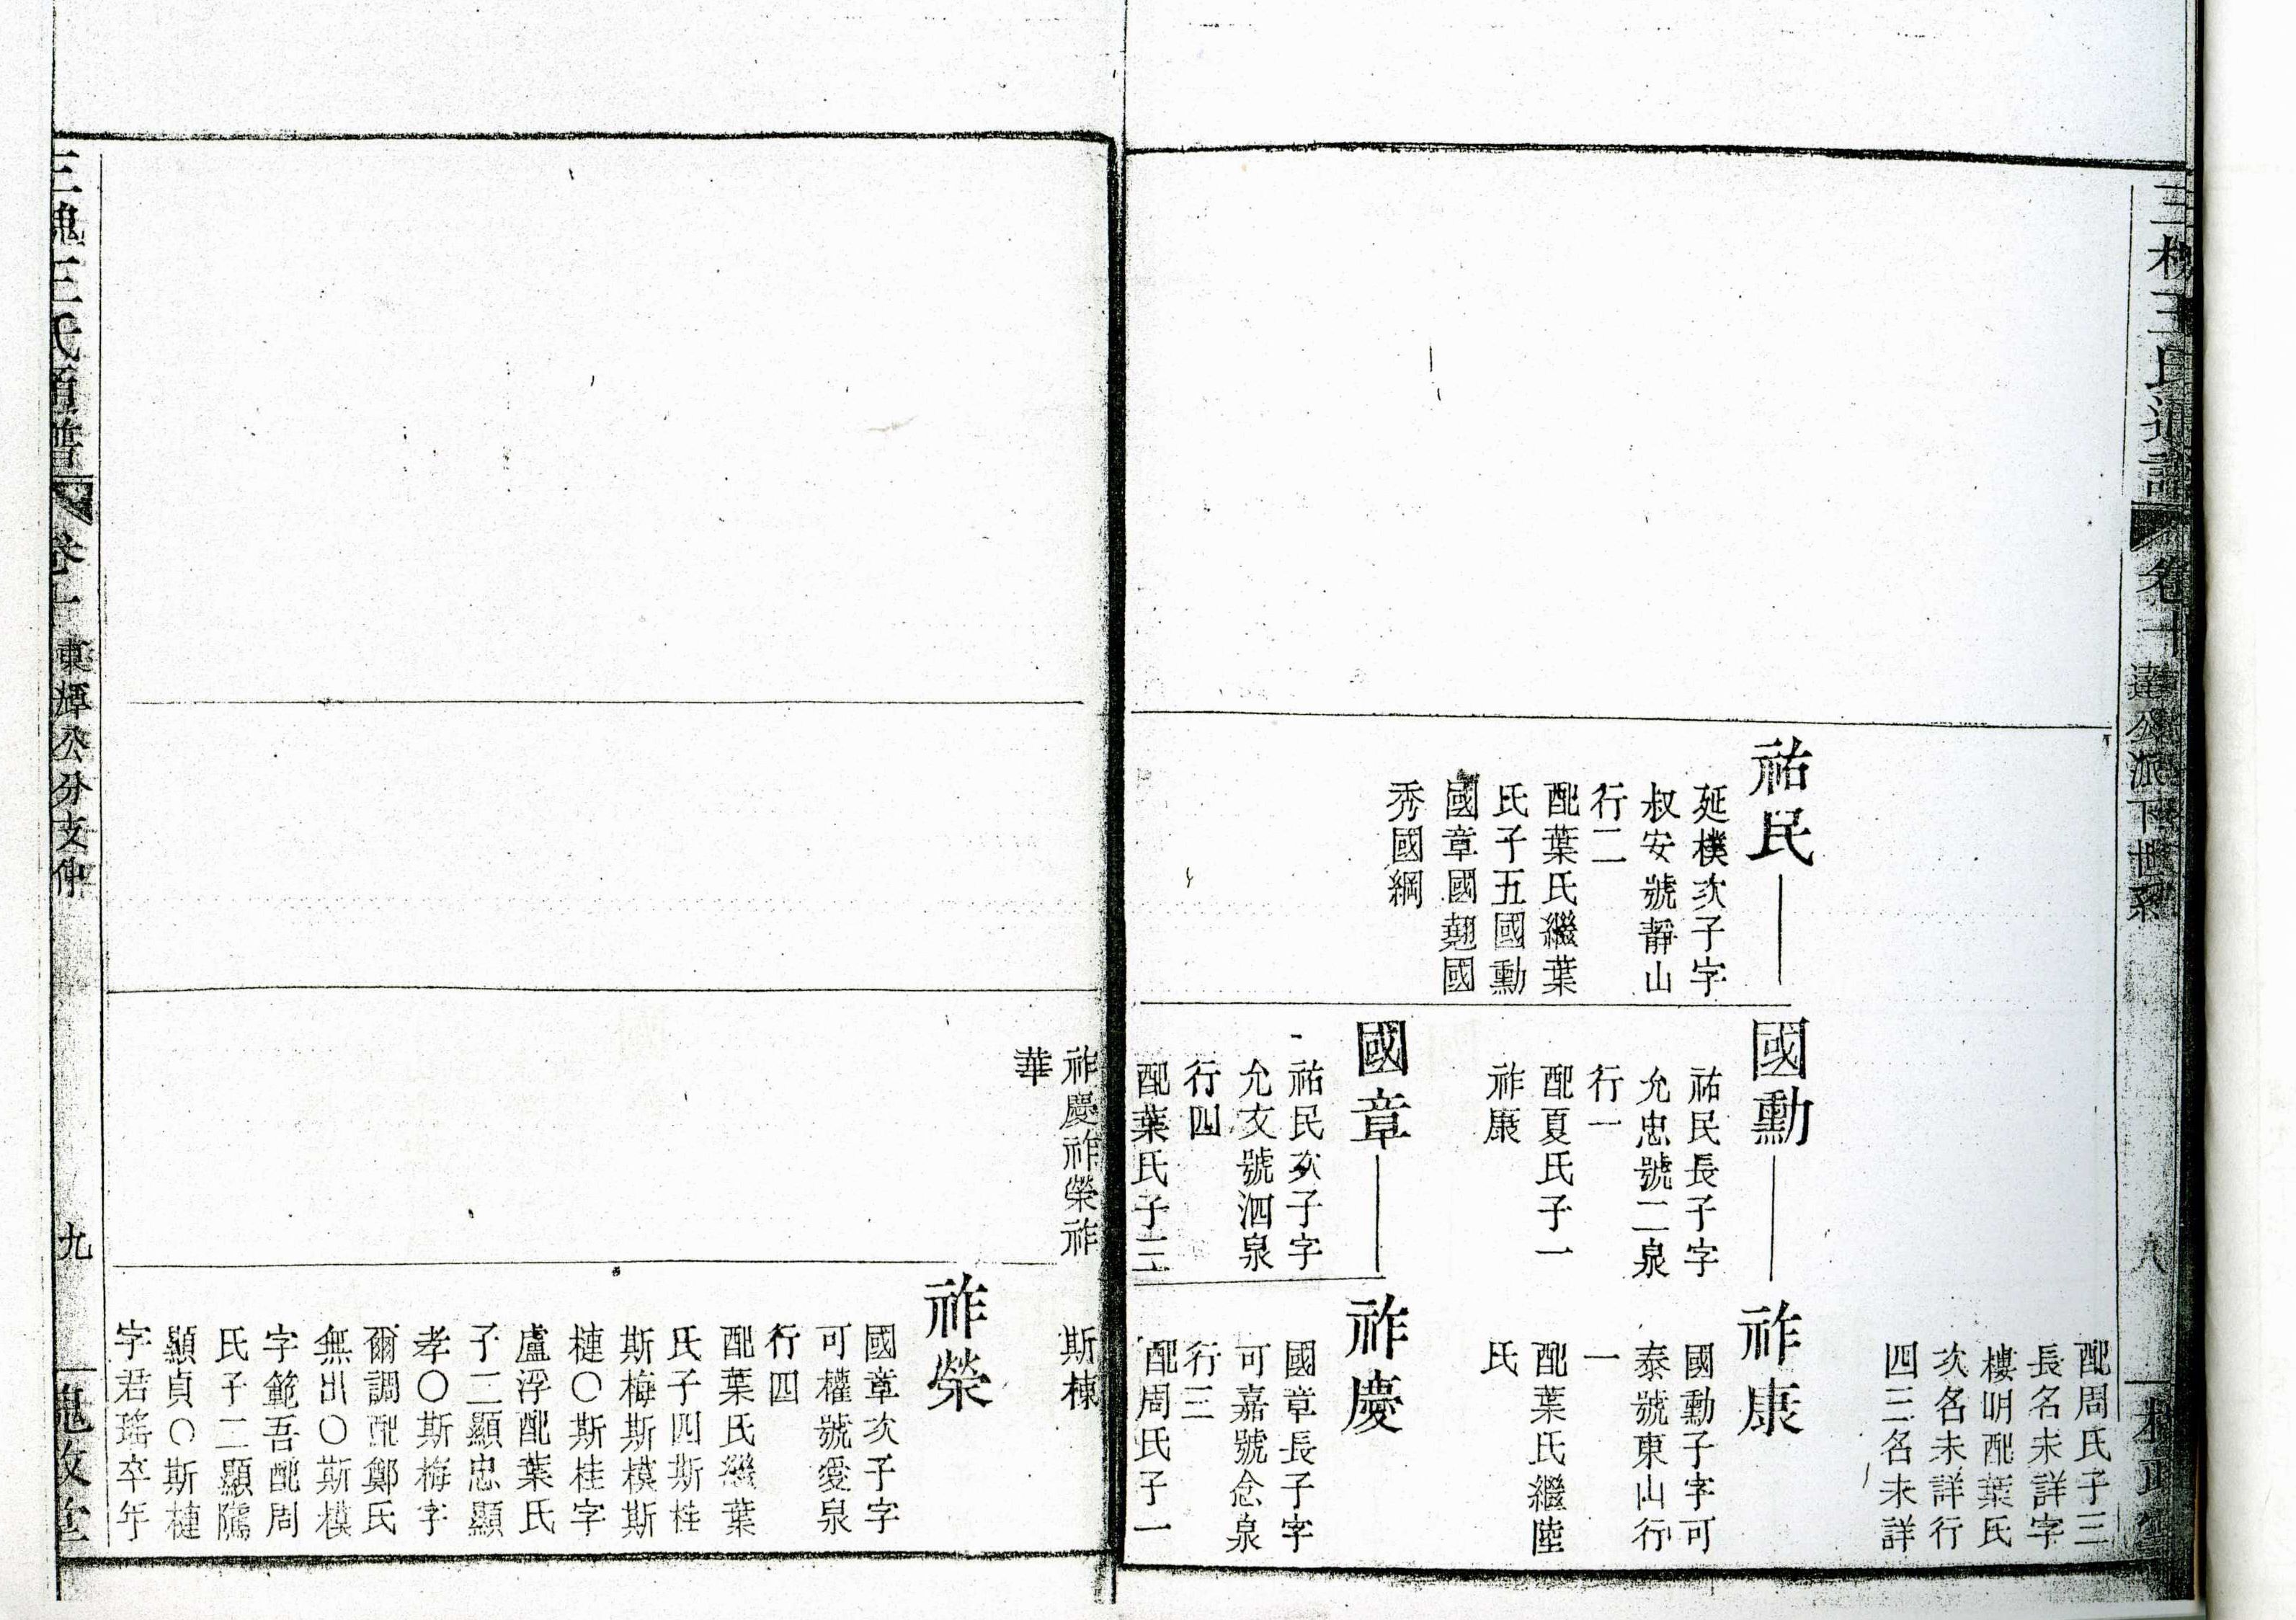 三槐王氏通譜
卷十
達公派下世系
八
三槐堂
配周氏子三
長名未詳字
樓明配葉氏
次名未詳行
四三名未詳
祐民
延樸次子字
叔安號靜山
行二
配葉氏繼葉
氏子五國勳
國章國翹國
秀國綱
國勳
祐民長子字
允忠號二泉
行一
配夏氏子一
祚康
祚康
國勳子字可
泰號東山行
一
配葉氏繼陸
氏
國章
祐民次子字
允文號泗泉
行四
配葉氏子三
祚慶
國章長子字
可嘉號念泉
行三
配周氏子一
祚慶祚榮祚
華
斯棟
祚榮
國章次子字
可權號愛泉
行四
配葉氏繼葉
氏子四斯桂
斯梅斯模斯
槤〇斯桂字
盧浮配葉氏
子二顯忠顯
孝〇斯梅字
爾調配鄭氏
無出〇斯模
字範吾配周
氏子二顯隲
顯貞〇斯槤
字君瑤卒年
三槐王氏通譜
卷十
東垣公分支仲
九
槐政堂